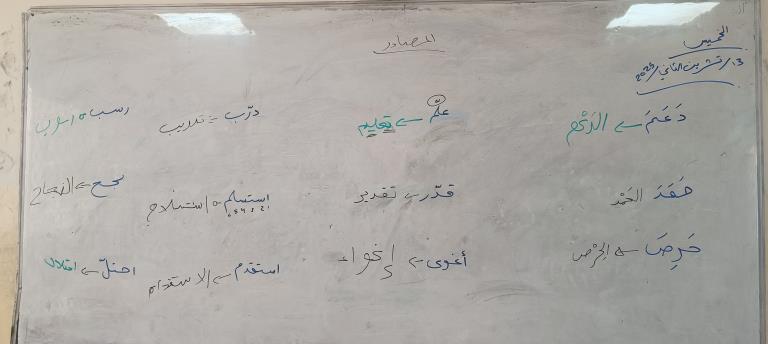 الخميس
١٣/تشرين الثاني/٢٠٢٥
المصادر
دَعَمَ ← الدَعْم
علّم ← تعليم
درّب ← تدريب
حَقَدَ الحَقْد
قدّر ← تقدير
استسلم ← استسلام
نجح ← النجاح
حَرِصَ ← الحِرْص
أغوى ← إغواء
استقدم ← الاستقدام
احتلّ ← احتلال